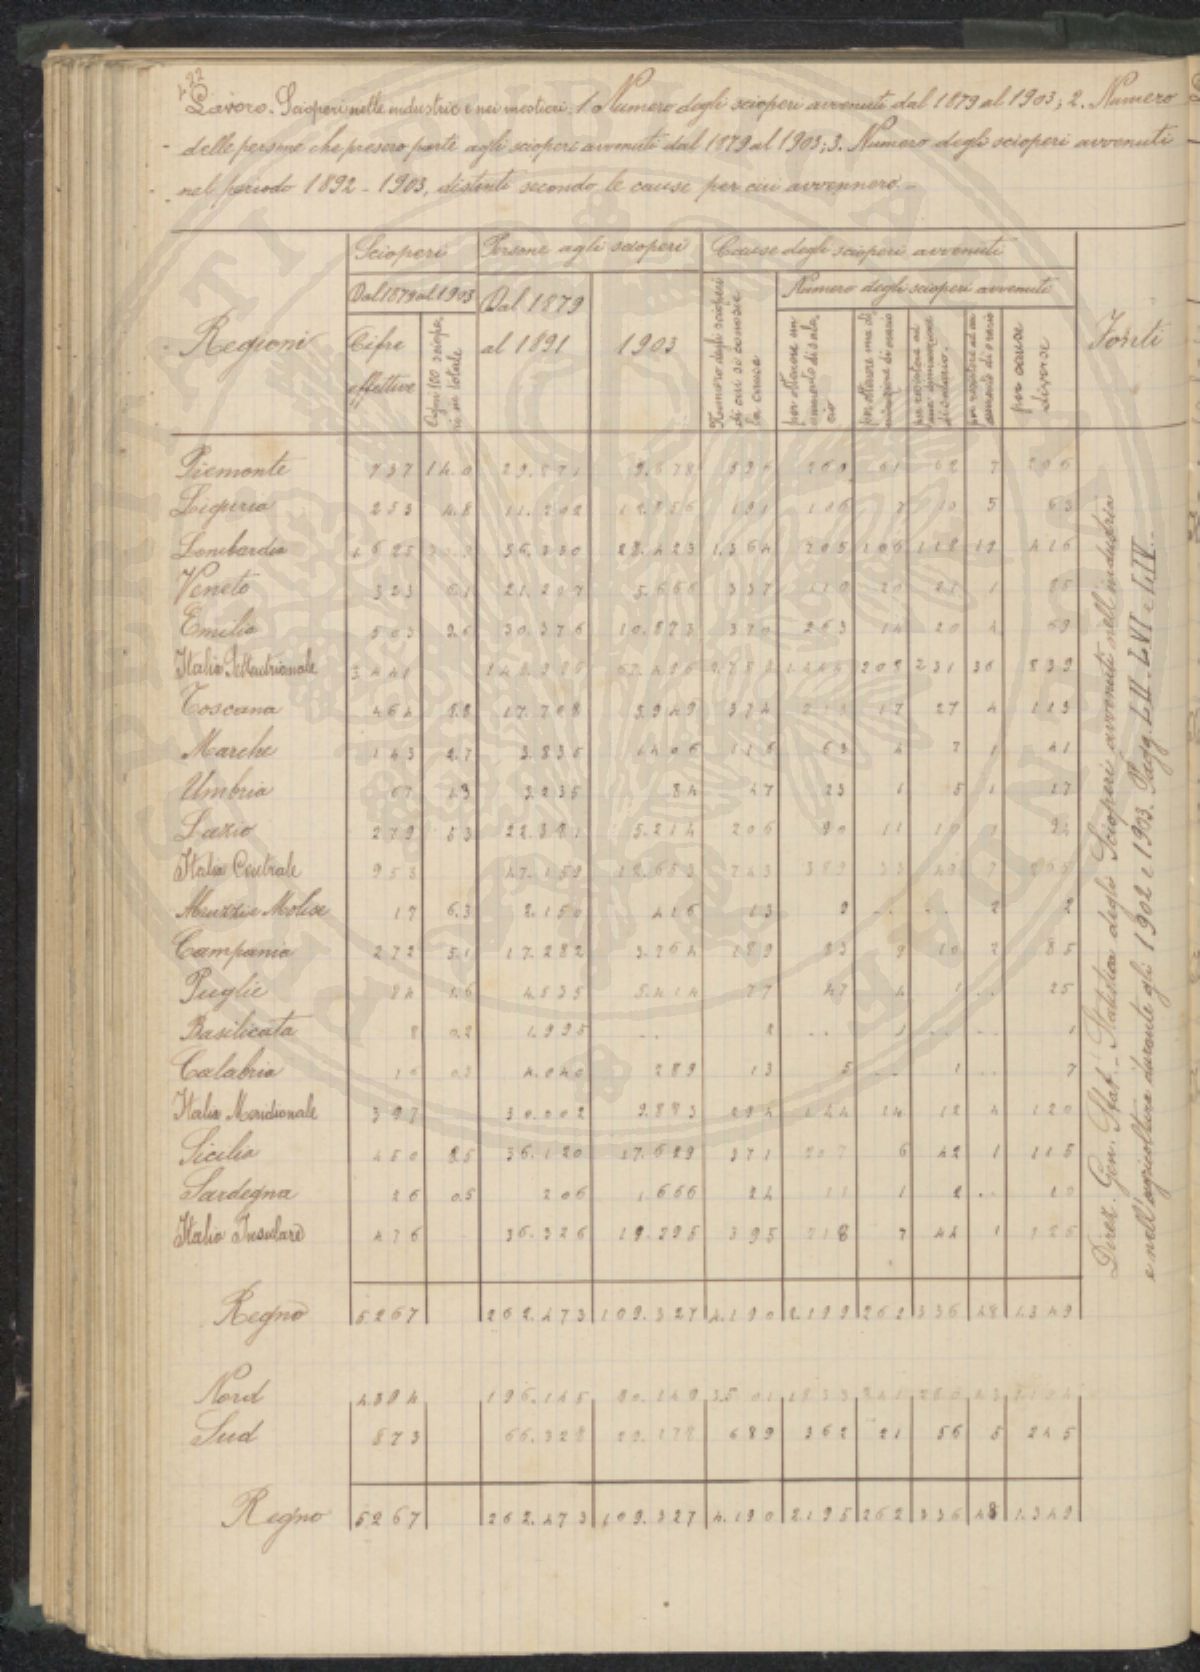 Lavoro. Scioperi nelle industrie e nei mestieri. 1. Numero degli scioperi avvenuti dal 1879 al 1903; 2. Numero
delle persone che presero parte agli scioperi avvenuti dal 1879 al 1903; 3. Numero degli scioperi avvenuti
nel periodo 1892 - 1903, distinti secondo le cause per cui avvennero.
Regioni
Scioperi
Dal 1879 al 1903
Cifre effettive
Ogni 100 scioperi in totale
Persone agli scioperi
Dal 1879 al 1891
1903
Cause degli scioperi avvenuti
Numero degli scioperi di cui si conosce la causa
Numero degli scioperi avvenuti
per ottenere un aumento di salario
per ottenere una diminuzione di orario
per resistere ad una diminuzione di salario
per resistere ad un aumento di orario
per cause diverse
Fonti
Piemonte 737 14.0 23.271 9.878 526 7 206
Liguria 253 4.8 11.202 12.856 191 106 7 10 5 63
Lombardia 1625 56.330 28.423 1.364 705 106 118 19 416
Veneto 323 6.1 21.207 5.666 237 110 20 21 1 85
Emilia 503 9.6 30.376 10.873 370 263 14 20 4 69
Italia Settentrionale 3441 208 231 36 839
Toscana 464 8.8 17.708 5.949 374 17 27 4 113
Marche 143 2.7 3.836 1406 116 63 4 7 1 41
Umbria 67 1.3 3.235 84 47 23 1 5 1 17
Lazio 279 5.3 22.381 5.214 206 90 11 10 1 94
Italia Centrale 953 47.159 12.653 743 389 33 49 7 265
Abruzzi e Molise 17 6.3 2.150 416 13 9 .. .. 2 2
Campania 272 5.1 17.282 3.764 189 83 9 10 2 85
Puglie 84 1.6 4.535 5.414 77 47 4 1 .. 25
Basilicata 8 0.2 1.995 .. 2 .. 1 .. .. 1
Calabria 16 0.3 4.040 289 13 5 .. 1 .. 7
Italia Meridionale 397 30.002 9.883 294 144 14 12 4 120
Sicilia 450 8.5 36.120 17.629 371 207 6 42 1 115
Sardegna 26 0.5 206 1.666 24 11 1 2 .. 10
Italia Insulare 476 36.326 19.295 395 218 7 44 1 125
Regno 5267 262.473 109.327 4.190 2.199 262 336 48 1.349
Nord 4394 196.145 80.149 3.501 1833 241 280 43
Sud 873 66.328 29.178 689 362 21 56 5 245
Regno 5267 262.473 109.327 4.190 2195 262 336 48 1.349
Direz. Gen. Stat. - Statistica degli Scioperi avvenuti nell'industria
e nell'agricoltura durante gli 1902 e 1903. Pagg. LII. LVI e LIV.